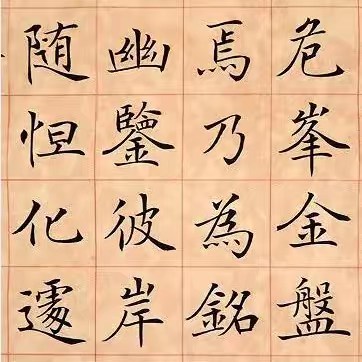 危峯金盤
焉乃為銘
幽鑒彼岸
随怛化遽